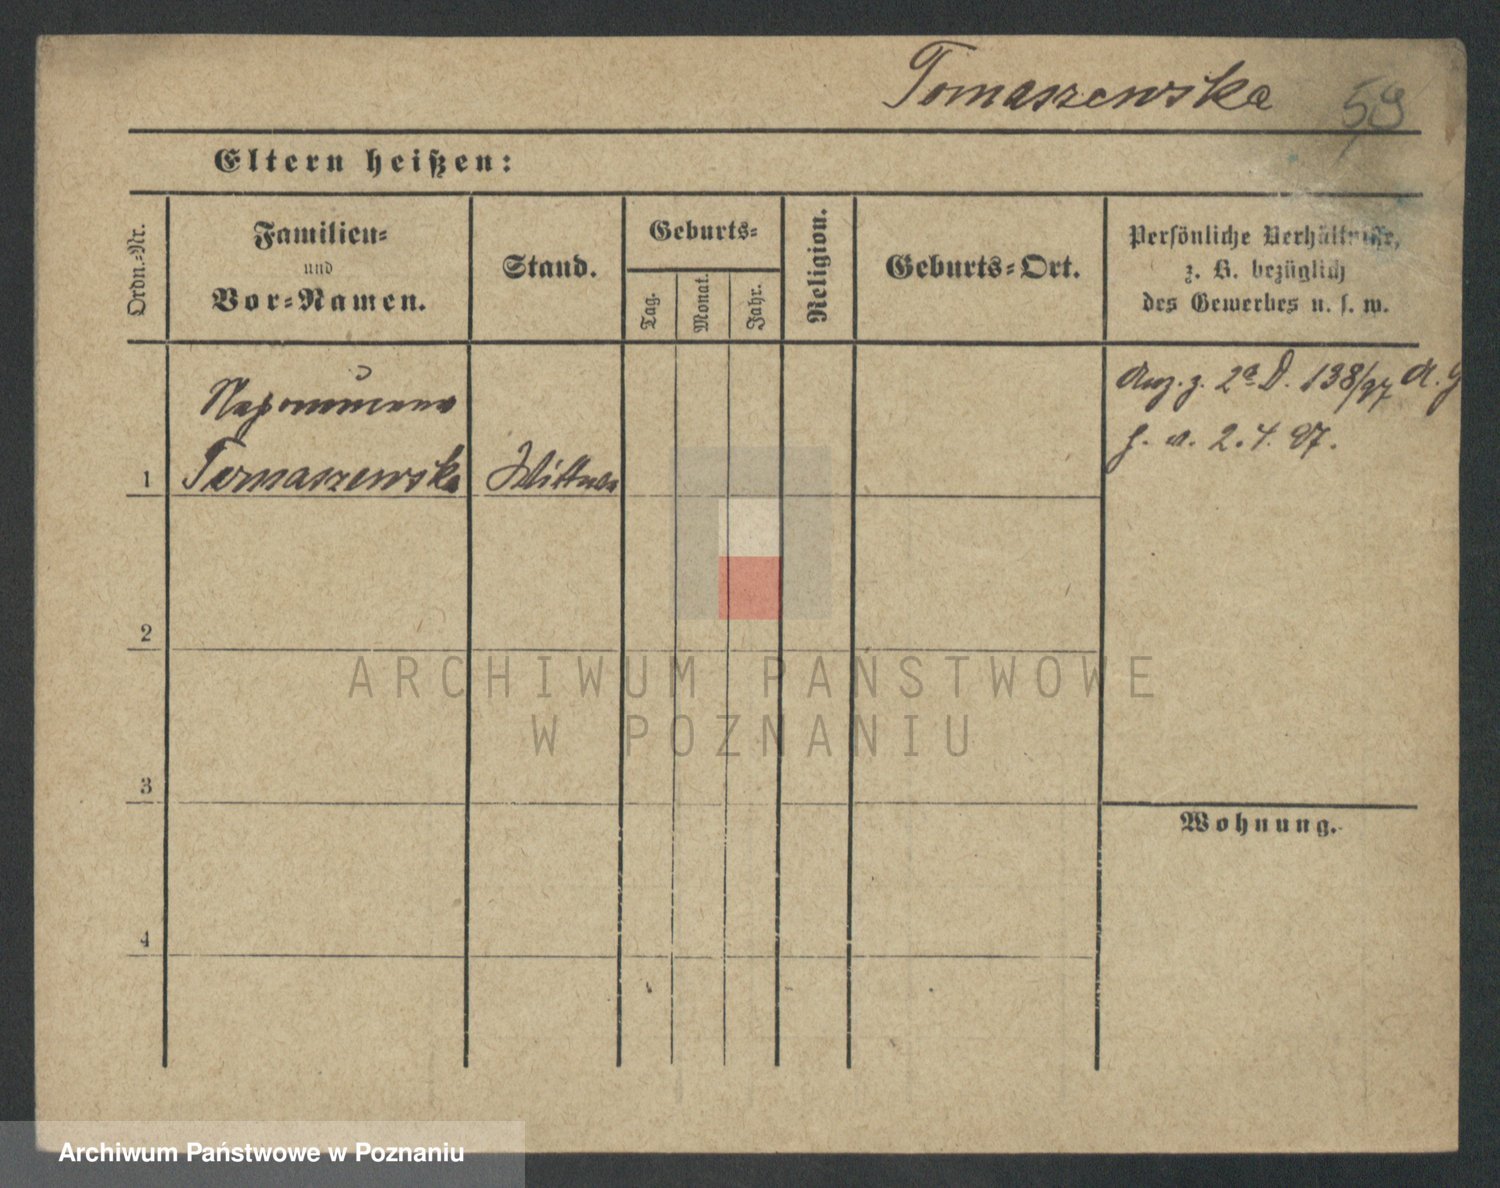 Tomaszewska 59
Eltern heißen:
Ordn.-Nr.
Familien-
und
Vor-Namen.
Stand.
Geburts-
Tag.
Monat.
Jahr.
Religion.
Geburts-Ort.
Persönliche Verhältnisse,
z. B. bezüglich
des Gewerbes u. s. w.
1
Nepomucena
Tomaszewska
Wittwe
z. 2a D. 138/97
2. 4. 97.
2
3
4
Wohnung.
ARCHIWUM PAŃSTWOWE
W POZNANIU
Archiwum Państwowe w Poznaniu